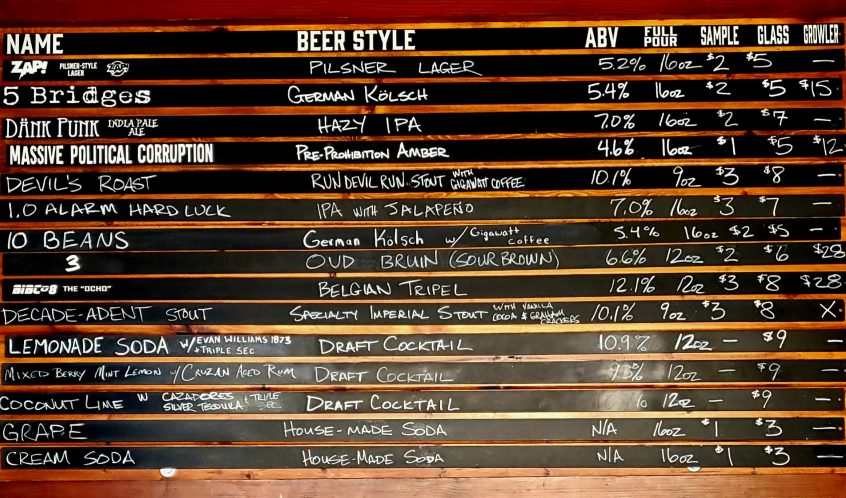 NAME BEER STYLE ABV FULL POUR SAMPLE GLASS GROWLER
ZAP! PILSNER-STYLE LAGER ZAP! PILSNER LAGER 5.2% 16oz $2 $5 —
5 Bridges GERMAN KÖLSCH 5.4% 16oz $2 $5 $15
DÄNK PUNK INDIA PALE ALE HAZY IPA 7.0% 16oz $2 $7 —
MASSIVE POLITICAL CORRUPTION PRE-PROHIBITION AMBER 4.6% 16oz $1 $5 $12
DEVIL'S ROAST RUN DEVIL RUN STOUT WITH GIGAWATT COFFEE 10.1% 9oz $3 $8 —
1.0 ALARM HARD LUCK IPA WITH JALAPEÑO 7.0% 16oz $3 $7 —
10 BEANS German Kölsch w/ Gigawatt coffee 5.4% 16oz $2 $5 —
3 OUD BRUIN (SOUR BROWN) 6.6% 12oz $2 $6 $28
THE "OCHO" BELGIAN TRIPEL 12.1% 12oz $3 $8 $28
DECADE-ADENT STOUT SPECIALTY IMPERIAL STOUT WITH VANILLA COCOA & GRAHAM CRACKERS 10.1% 9oz $3 $8 X
LEMONADE SODA W/EVAN WILLIAMS 1873 +TRIPLE SEC DRAFT COCKTAIL 10.9% 12oz — $9 —
MIXED BERRY MINT LEMON W/CRUZAN AGED RUM DRAFT COCKTAIL 12oz — $9 —
COCONUT LIME W CAZADORES SILVER TEQUILA + TRIPLE SEC DRAFT COCKTAIL % 12oz — $9 —
GRAPE HOUSE-MADE SODA N/A 16oz $1 $3 —
CREAM SODA HOUSE-MADE SODA N/A 16oz $1 $3 —